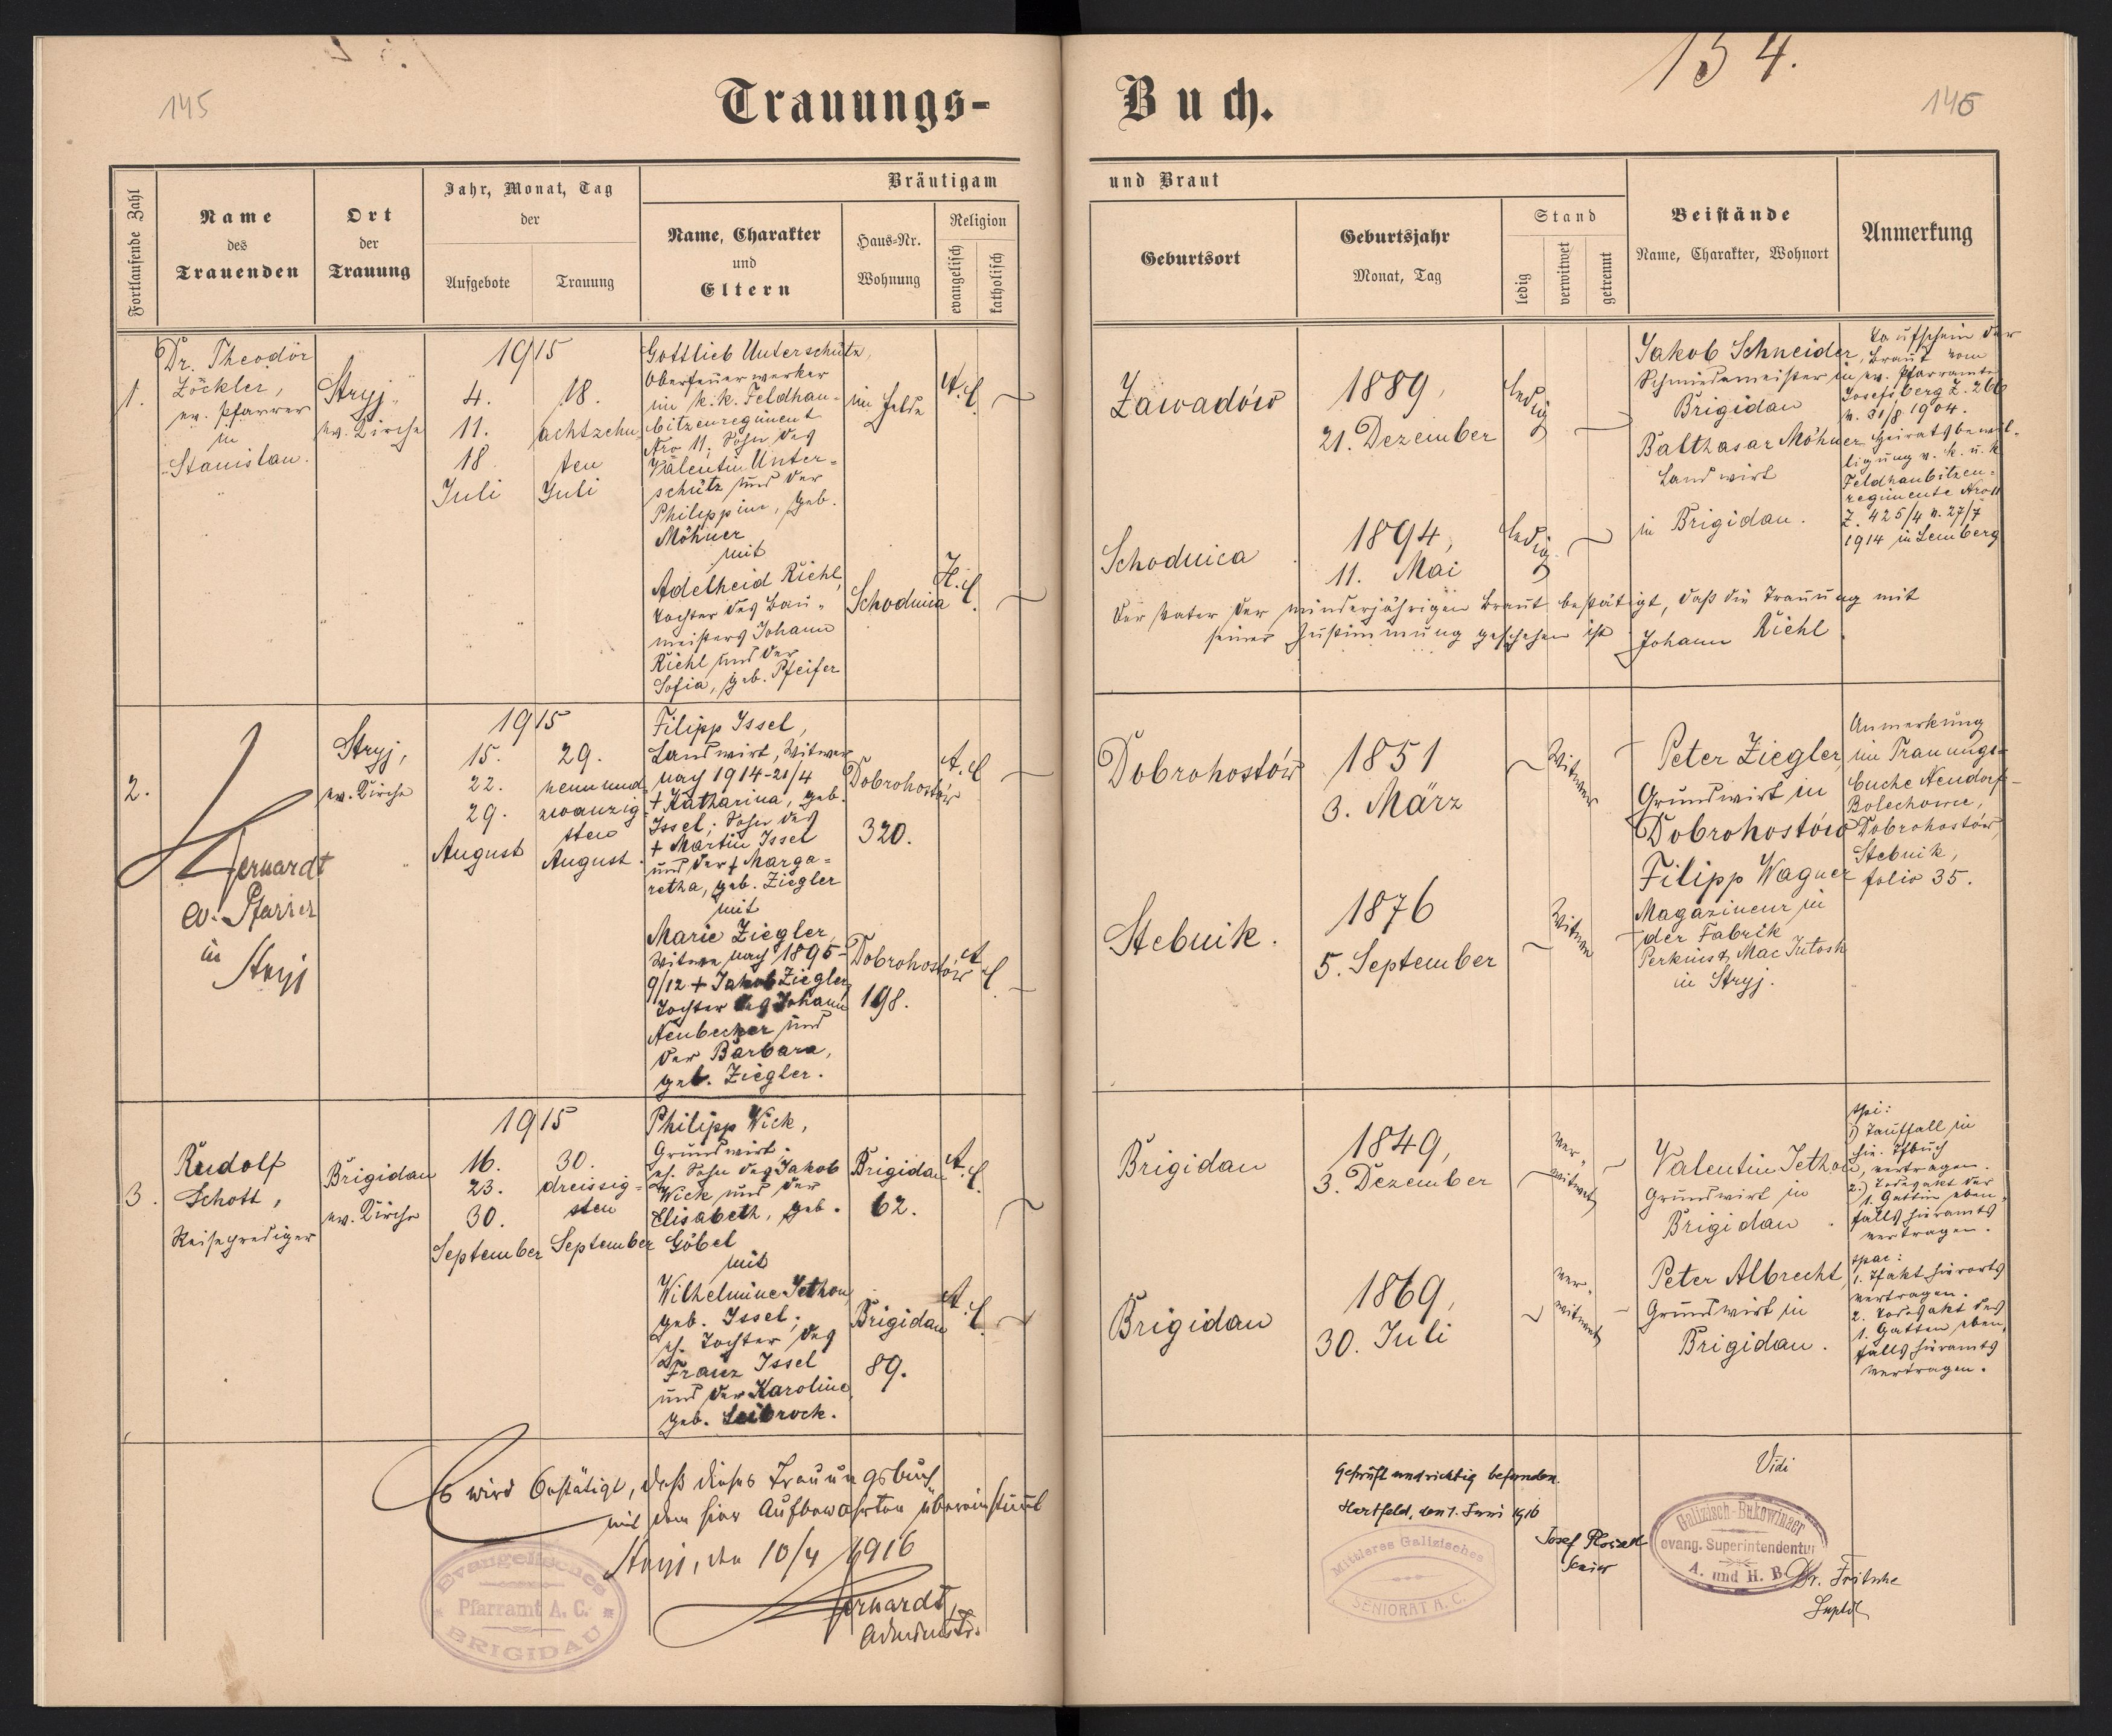 145
Trauungs-
Buch.
154.
146
Fortlaufende Zahl
Name
des
Trauenden
Ort
der
Trauung
Jahr, Monat, Tag
der
Aufgebote
Trauung
Bräutigam
Name, Charakter
und
Eltern
Haus-Nr.
Wohnung
Religion
evangelisch
katholisch
und Braut
Geburtsort
Geburtsjahr
Monat, Tag
Stand
ledig
verwitwet
getrennt
Beistände
Name, Charakter, Wohnort
Anmerkung
1.
Dr. Theodor
Zöckler,
ev. Pfarrer
in
Stanislau.
Stryj
ev. Kirche
1915
4.
11.
18
Juli
18.
achtzehn-
ten
Juli
Gottlieb Unterschütz,
Oberfeuerwerker
im k.k. Feldhau-
bitzenregiment
Nro 11; Sohn des
Valentin Unter-
schütz und der
Philippine, geb.
Möhner
mit
Adelheid Riehl,
Tochter des Bau-
meisters Johann
Riehl und der
Sofia, geb. Pfeifer
im Felde
A.C.
Schodnica
H.C.
Zawadów
1889,
21. Dezember
ledig
Schodnica
1894,
11. Mai
ledig
Jakob Schneider,
Schmiedemeister in
Brigidau
Balthasar Möhner
Landwirt
in Brigidau.
Taufschein der
Braut vom
ev. Pfarramte
Josefsberg Z. 266
v. 31/8 1904.
Heiratsbewil-
ligung v. k. u. k
Feldhaubitzen-
regimente Nro 11
Z. 425/4 v. 27/7
1914 in Lemberg
Der Vater der minderjährigen Braut bestätigt, daß die Trauung mit
seiner Zustimmung geschehen ist Johann Riehl
2.
Gerhardt
ev. Pfarrer
in
Stryj
Stryj,
ev. Kirche
1915
15.
22.
29.
August
29.
neunund
zwanzig-
sten
August.
Filipp Issel,
Landwirt, Witwer
nach 1914-21/4
+ Katharina, geb.
Issel; Sohn des
+ Martin Issel
und der + Marga-
retha, geb. Ziegler
mit
Marie Ziegler,
Witwe nach 1895-
9/12 + Jakob Ziegler,
Tochter des Johann
Neubecker und
der Barbara,
geb. Ziegler.
Dobrohostów
320.
A.C.
Dobrohostów
198.
A.C.
Dobrohostów
1851
3. März
Witwer
Stebnik.
1876
5. September
Witwe
Peter Ziegler,
Grundwirt in
Dobrohostów
Filipp Wagner
Magazineur in
der Fabrik
Perkins & Mac Intosh
in Stryj.
Anmerkung
im Trauungs-
buche Neudorf-
Bolechowce,
Dobrohostów,
Stebnik,
folio 35.
3.
Rudolf
Schott,
Reiseprediger
Brigidau
ev. Kirche
1915
16.
23.
30.
September
30.
dreissig-
sten
September
Philipp Wick,
Grundwirt;
eh. Sohn des Jakob
Wick und der
Elisabeth, geb.
Göbel
mit
Wilhelmine Jethon,
geb. Issel;
eh. Tochter des
Franz Issel
und der Karoline,
geb. Leibrock.
Brigidau
62.
A.C.
Brigidau
89.
A.C.
Brigidau
1849,
3. Dezember
ver-
witwet
Brigidau
1869,
30. Juli
ver-
witwet
Valentin Jethon,
Grundwirt in
Brigidau.
Peter Albrecht,
Grundwirt in
Brigidau.
1) Tauffall im
hie. Tfbuch
vertragen.
2.) Todesakt der
1. Gattin eben-
falls hieramts
vertragen.
1. Tfakt hierorts
vertragen.
2. Todesakt des
1. Gatten eben-
falls hieramts
vertragen.
Es wird bestätigt, daß dieses Trauungsbuch
mit dem hier Aufbewahrten übereinstimmt
Stryj, den 10/4 1916
Gerhardt,
Administr.
Evangelisches
Pfarramt A. C.
BRIGIDAU
Geprüft und richtig befunden.
Hartfeld, den 1. Juni 1916
Josef
Senior
Mittleres Galizisches
SENIORAT A. C.
Vidi
Galizisch-Bukowinaer
evang. Superintendentur
A. und H. B.
Dr. Fritsche
Suptdt